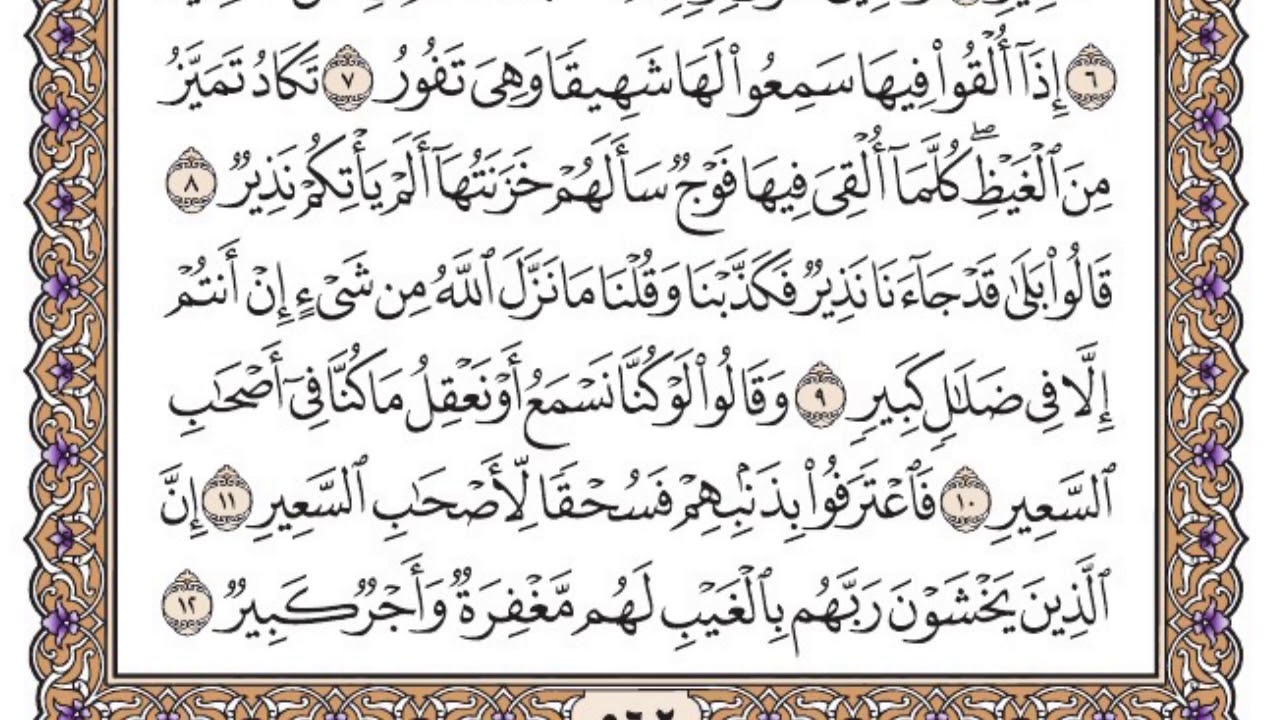 ٦ إِذَآ أُلْقُوا۟ فِيهَا سَمِعُوا۟ لَهَا شَهِيقًا وَهِىَ تَفُورُ ٧ تَكَادُ تَمَيَّزُ
مِنَ ٱلْغَيْظِ ۖ كُلَّمَآ أُلْقِىَ فِيهَا فَوْجٌ سَأَلَهُمْ خَزَنَتُهَآ أَلَمْ يَأْتِكُمْ نَذِيرٌ ٨
قَالُوا۟ بَلَىٰ قَدْ جَآءَنَا نَذِيرٌ فَكَذَّبْنَا وَقُلْنَا مَا نَزَّلَ ٱللَّهُ مِن شَىْءٍ إِنْ أَنتُمْ
إِلَّا فِى ضَلَـٰلٍ كَبِيرٍ ٩ وَقَالُوا۟ لَوْ كُنَّا نَسْمَعُ أَوْ نَعْقِلُ مَا كُنَّا فِىٓ أَصْحَـٰبِ
ٱلسَّعِيرِ ١٠ فَٱعْتَرَفُوا۟ بِذَنۢبِهِمْ فَسُحْقًا لِّأَصْحَـٰبِ ٱلسَّعِيرِ ١١ إِنَّ
ٱلَّذِينَ يَخْشَوْنَ رَبَّهُم بِٱلْغَيْبِ لَهُم مَّغْفِرَةٌ وَأَجْرٌ كَبِيرٌ ١٢